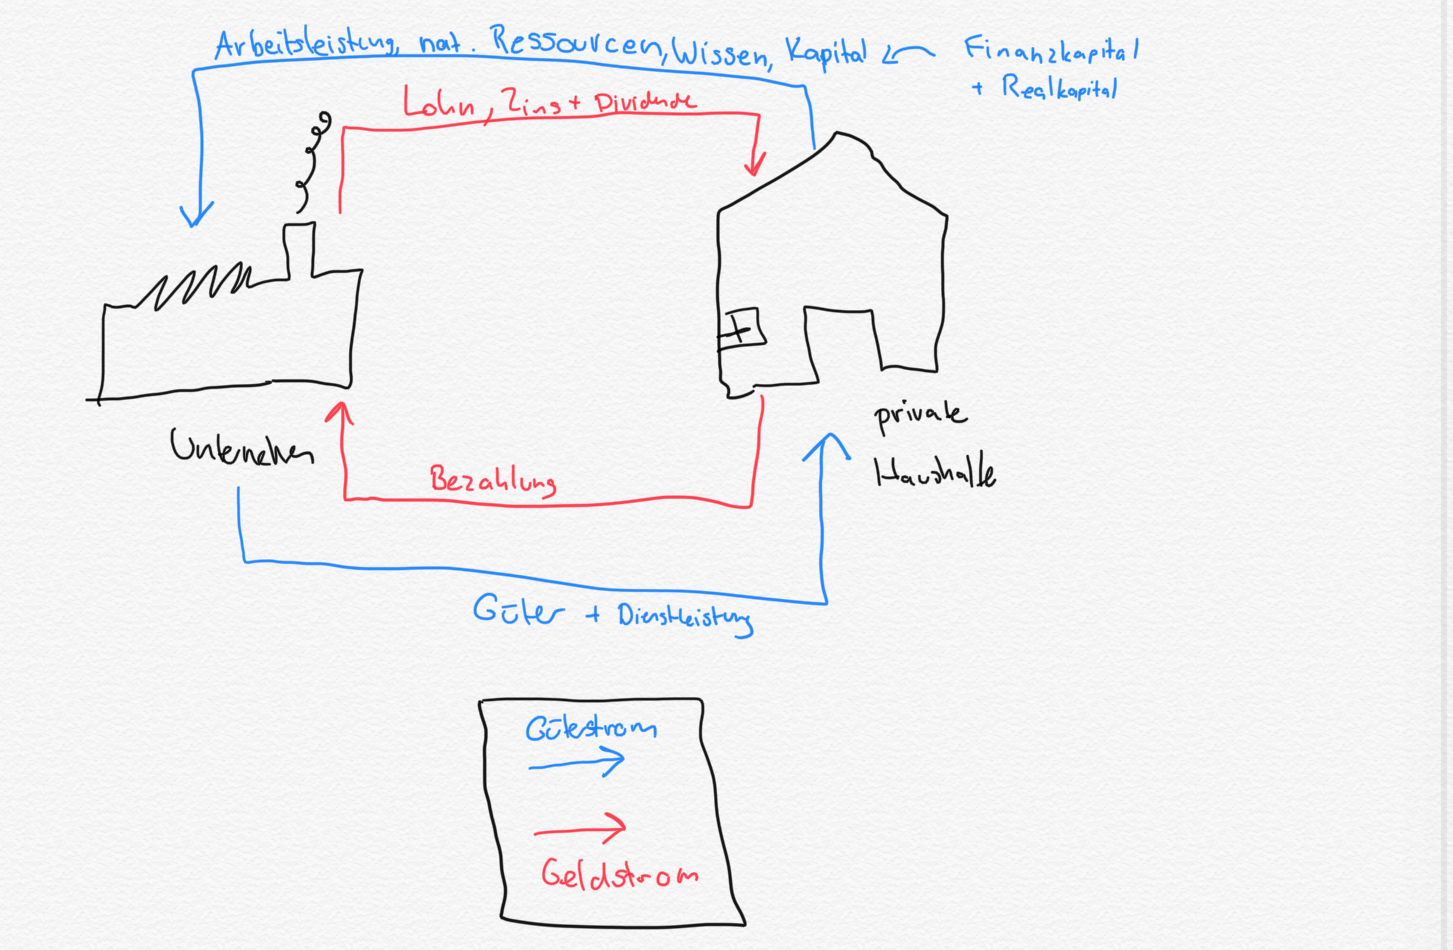 Arbeitsleistung, nat. Ressourcen, Wissen, Kapital
Finanzkapital
+ Realkapital
Lohn, Zins + Dividende
Unternehen
private
Haushalte
Bezahlung
Güter + Dienstleistung
Güterstrom
Geldstrom